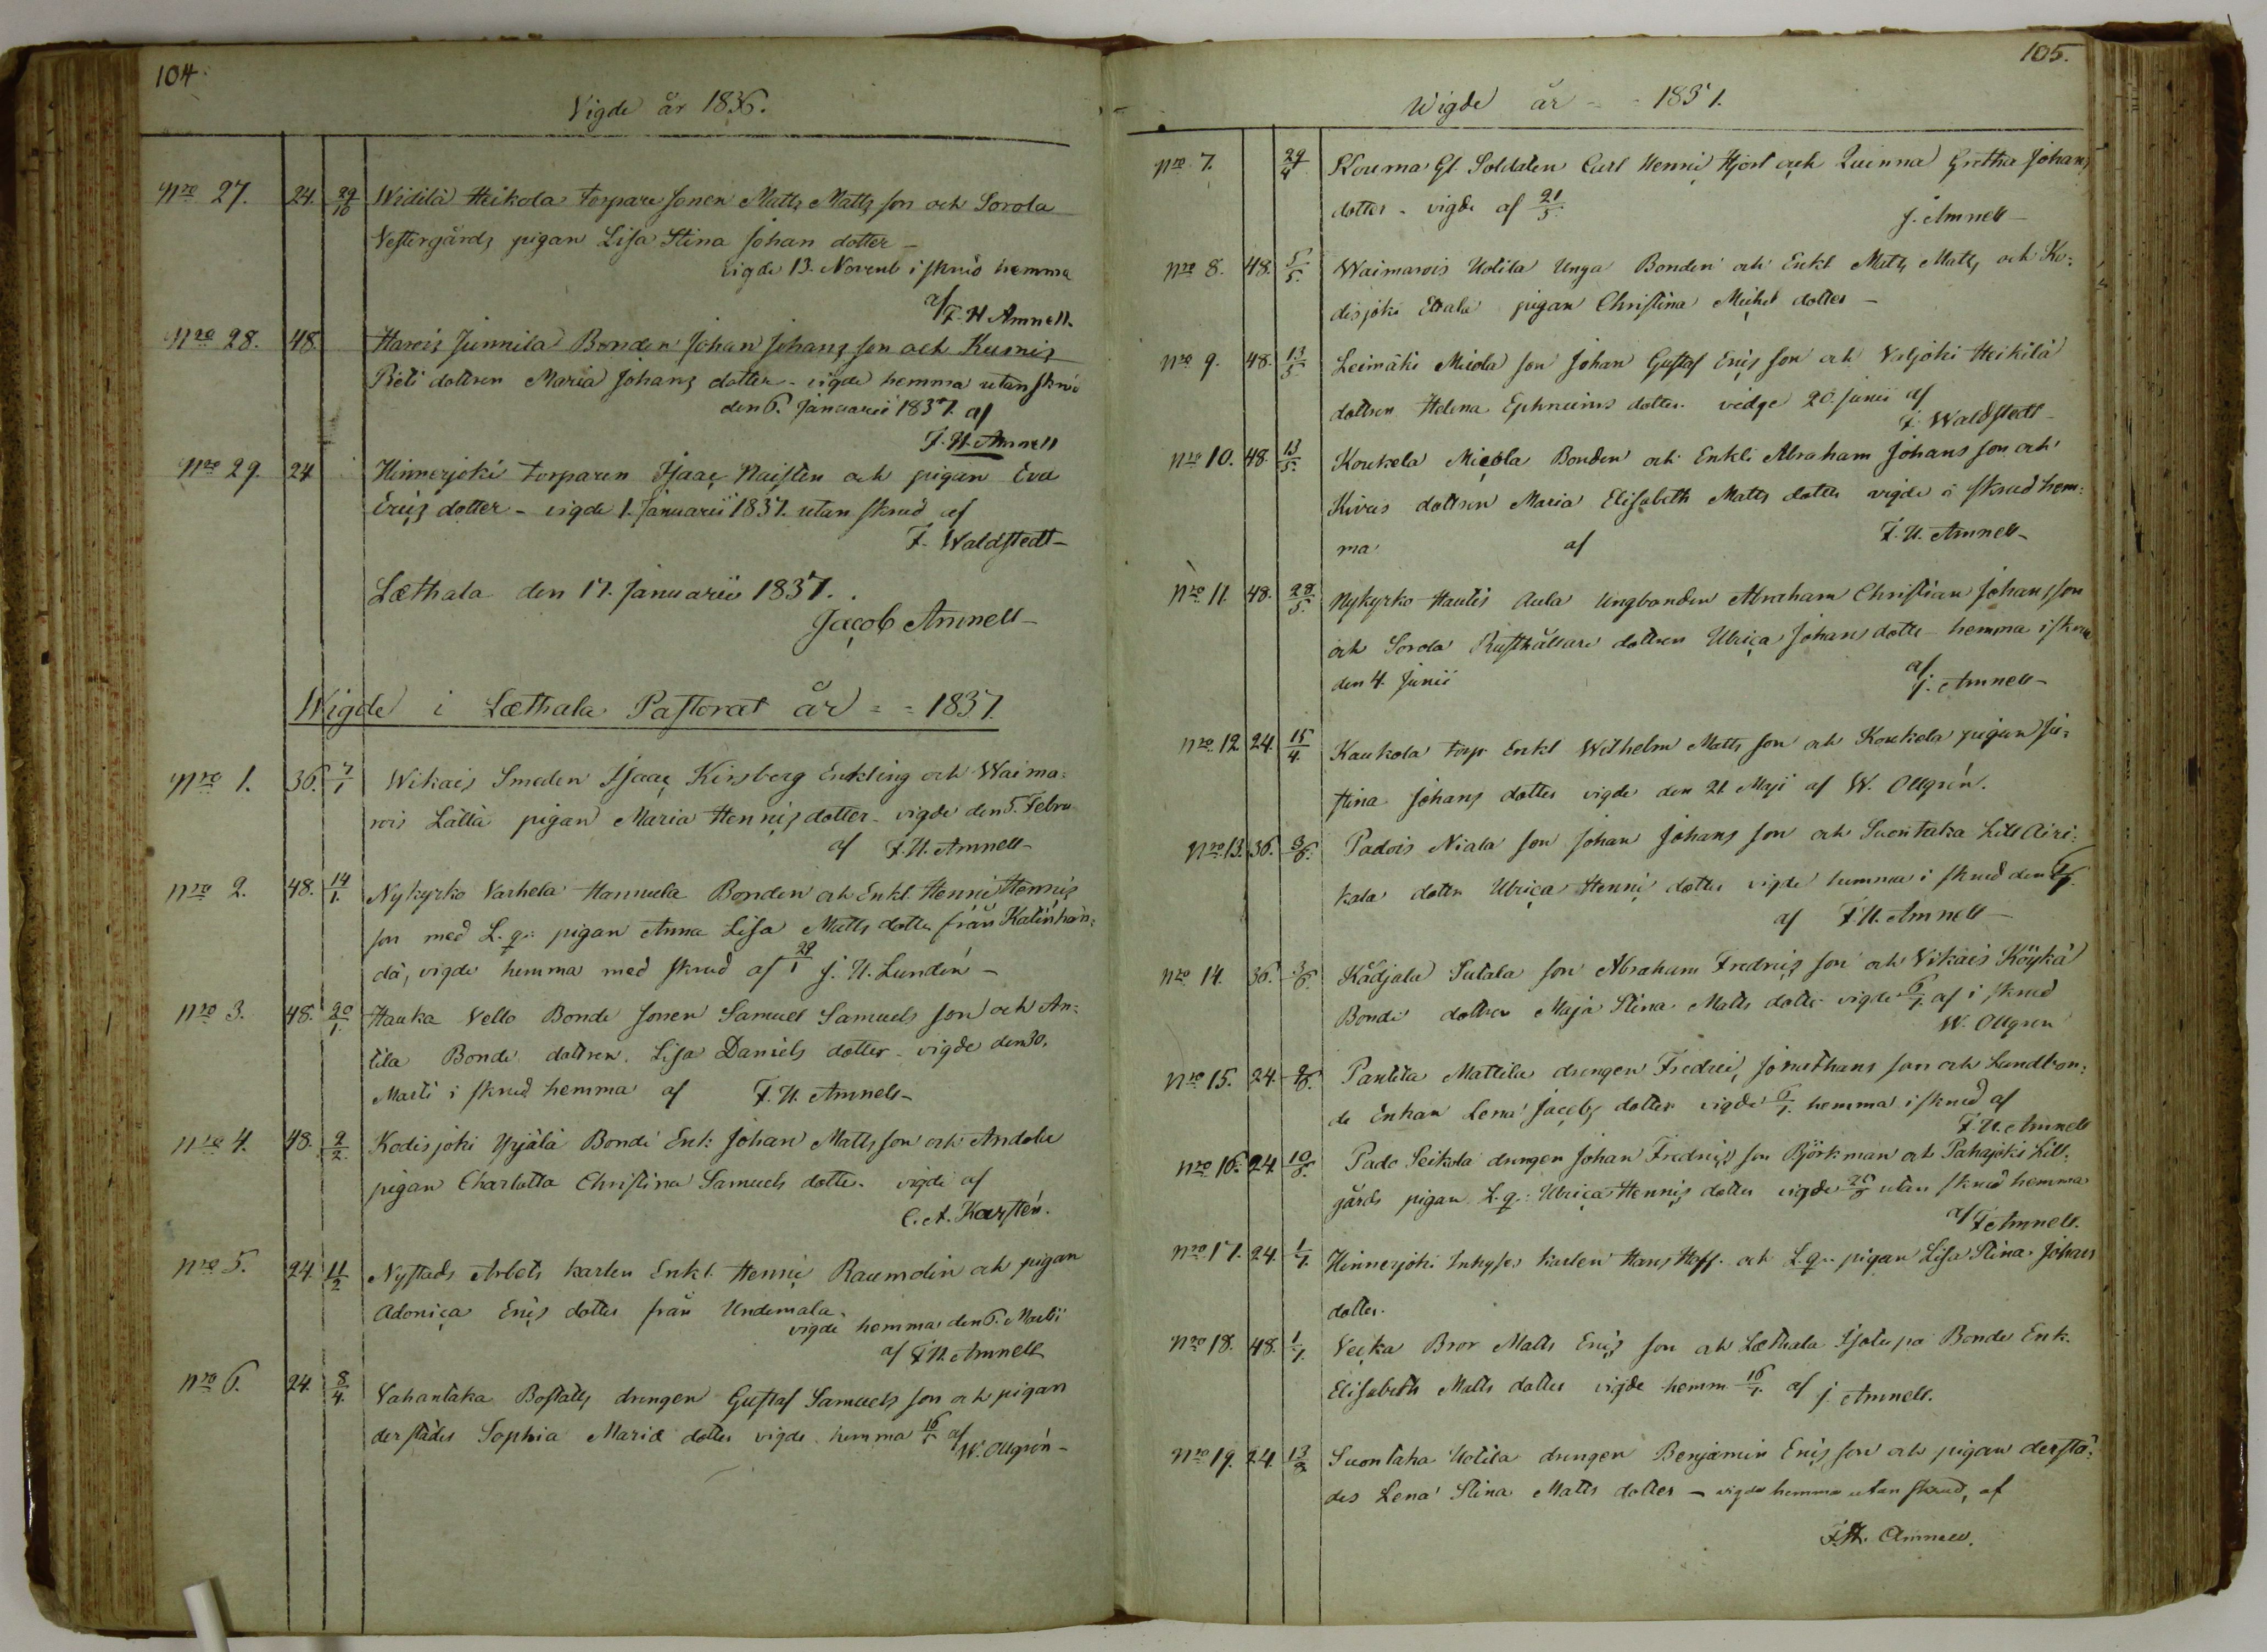 104.
Vigde år 1836.
Nro 27. 24. 29/10 Widilä Heikola torpare sonen Matts Matts son och Sorola
Vestergårds pigan Lisa Stina Johan dotter –
vigde 13. Novemb i skrud hemma
af F. H. Amnell.
Nro 28. 48. Haveis Junnila Bonden Johan Johans son och Kusnis
Pieti dottren Maria Johans dotter – vigde hemma utan skrud
den 6. Januarii 1837. af
F. H. Amnell
Nro 29. 24 Hinnerjoki torparen Isaac Naisten och pigan Eva
Erics dotter – vigde 1. Januarii 1837. utan skrud af
F. Waldstedt –
Læthala den 17. Januarii 1837.
Jacob Amnell –
Wigde i Læthala Pastorat år = = 1837.
Nro 1. 36. 7/1 Wikais Smeden Isaac Kinberg Enkling och Waima=
rois Lälla pigan Maria Henrics dotter – vigde den 5. Febru
af F. H. Amnell –
Nro 2. 48. 14/1. Nykyrko Varhela Hannula Bonden och Enkl. Henric Henrics
son med L. q: pigan Anna Lisa Matts dotter från Katinhän=
dä, vigde hemma med skrud af 29/1 J. H. Lundén –
Nro 3. 48. 20/1. Hauka Vello Bonde sonen Samuel Samuels son och An=
tila Bonde dottren Lisa Daniels dotter – vigde den 30.
Martii i skrud hemma af F. H. Amnell –
Nro 4. 48. 2/2. Kodisjoki Yrjälä Bonde Enk: Johan Matts son och Andola
pigan Charlotta Christina Samuels dotter. vigde af
C. A. Karstén.
Nro 5. 24 11/2 Nystads Arbets karlen Enkl. Henric Raumolin och pigan
Adonica Erics dotter från Undemala.
vigde hemma den 6. Martii
af F. H. Amnell
Nro 6. 24. 8/4. Vahantaka Bostälts drengen Gustaf Samuels son och pigan
derstädes Sophia Maria dotter vigde hemma 16/5 af
W. Ollgrén –
105.
Wigde år = = 1837.
Nro 7. 29/4 Kouma Gl. Soldaten Carl Henric Hjort och Quinna Gretha Johans
dotter – vigde af 21/5.
J. Amnell –
Nro 8. 48. 5/5. Waimarois Uotila Unga Bonden och Enkl Matts Matts och Ko=
disjoki Etala pigan Christina Michel dotter –
Nro 9. 48. 13/5 Leimäki Micola son Johan Gustaf Erics son och Valjoki Heikilä
dottren Helena Ephraims dotter. vidge 20. Junii af
F. Waldstedt –
Nro 10. 48. 13/5. Koukela Micola Bonden och Enkli Abraham Johans son och
Kivas dottren Maria Elisabeth Matts dotter vigde i skrud hem=
ma af F. H. Amnell –
Nro 11. 48. 28/5. Nykyrko Hautis Aula Ungbonden Abraham Christian Johansson
och Sorola Rusthållare dottren Ulrica Johans dotte hemma i skrud
den 4. Junii af
J. Amnell –
Nro 12 24. 15/4. Kaukola torp Enkl Wilhelm Matts son och Koukela pigan Ju=
stina Johans dotter vigde den 21 Maji af W. Ollgrén.
Nro 13. 36. 3/6. Padois Niala son Johan Johans son och Suontaka Lill Airi=
kala dotter Ulrica Henric dotter vigde hemma i skrud den
af F. H. Amnell –
Nro 14. 36. 3/6. Kådjala Sutala son Abraham Fredrics son och Vikais Köykä
Bonde dottren Maja Stina Matts dotter vigde 6/7. af i skrud
W. Ollgren
Nro 15. 24. Pantila Mattila drengen Fredric Jonathans son och Landbon=
de Enkan Lena Jacobs dotter vigde 6/7. hemma i skrud af
F. H. Amnell
Nro 16. 24 10/6. Pado Seikola drengen Johan Fredrics son Björkman och Pahajoki Lill=
gårds pigan L. q: Ulrica Henrics dotter vigde utan skrud hemma
af F Amnell.
Nro 17. 24. 1/7. Hinnerjoki Inhyses karlen Hans Hoff. och L. q: pigan Lisa Stina Johans
dotter.
Nro 18. 48. 1/7. Vecka Bror Matts Erics son och Læthala Bonde Enk.
Elisabeth Matts dotter vigde hemm 16/7. af J. Amnell.
Nro 19. 24. 13/8 Suontaka Uotila drengen Benjamin Erics son och pigan derstä=
des Lena Stina Matts dotter – vigde hemma utan skrud, af
F. H. Amnell.